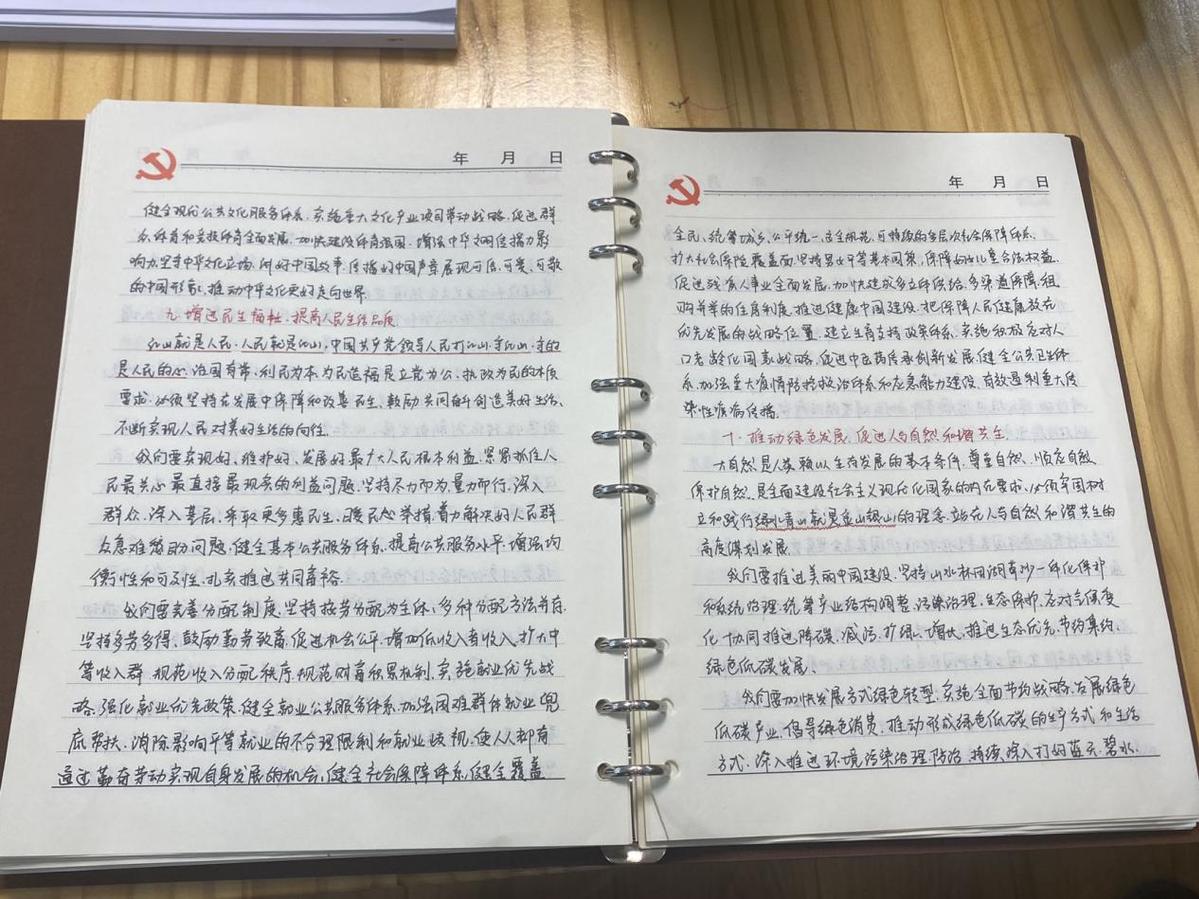 年 月 日
健全现代公共文化服务体系,实施重大文化产业项目带动战略,促进群
众体育和竞技体育全面发展,加快建设体育强国,增强中华文明传播力影
响力,坚守中华文化立场,讲好中国故事,传播好中国声音展现可信、可爱、可敬
的中国形象,推动中华文化更好走向世界.
九、增进民生福祉、提高人民生活品质
江山就是人民、人民就是江山,中国共产党领导人民打江山、守江山,守的
是人民的心.治国有常,利民为本为民造福是立党为公、执政为民的本质
要求.必须坚持在发展中保障和改善民生、鼓励共同奋斗创造美好生活、
不断实现人民对美好生活的向往.
我们要实现好、维护好、发展好最广大人民根本利益.紧紧抓住人
民最关心最直接最现实的利益问题,坚持尽力而为、量力而行、深入
群众、深入基层,采取更多惠民生、暖民心举措,着力解决好人民群
众急难愁盼问题,健全基本公共服务体系,提高公共服务水平,增强均
衡性和可及性,扎实推进共同富裕.
我们要完善分配制度,坚持按劳分配为主体、多种分配方法并存.
坚持多劳多得、鼓励勤劳致富,促进机会公平,增加低收入者收入,扩大中
等收入群,规范收入分配秩序,规范财富积累机制,实施就业优先战
略,强化就业优先政策,健全就业公共服务体系,加强困难群体就业兜
底帮扶,消除影响平等就业的不合理限制和就业歧视,使人人都有
通过勤奋劳动实现自身发展的机会,健全社会保障体系,健全覆盖
年 月 日
全民、统筹城乡、公平统一、安全规范、可持续的多层次社会保障体系.
扩大社会保险覆盖面,坚持男女平等基本国策,保障妇女儿童合法权益.
促进残疾人事业全面发展,加快建成多主体供给、多渠道保障、租
购并举的住房制度,推进健康中国建设,把保障人民健康放在
优先发展的战略位置,建立生育支持政策体系,实施积极应对人
口老龄化国家战略,促进中医药传承创新发展,健全公共卫生体
系,加强重大疫情防控救治体系和应急能力建设,有效遏制重大传
染性疾病传播.
十、推动绿色发展,促进人与自然和谐共生.
大自然是人类赖以生存发展的基本条件,尊重自然、顺应自然、
保护自然,是全面建设社会主义现代化国家的内在要求,必须牢固树
立和践行绿水青山就是金山银山的理念,站在人与自然和谐共生的
高度谋划发展.
我们要推进美丽中国建设,坚持山水林田湖草沙一体化保护
和系统治理,统筹产业结构调整、污染治理、生态保护、应对气候变
化,协同推进降碳、减污、扩绿、增长,推进生态优先、节约集约、
绿色低碳发展.
我们要加快发展方式绿色转型,实施全面节约战略,发展绿色
低碳产业,倡导绿色消费,推动形成绿色低碳的生产方式和生活
方式.深入推进环境污染治理防治,持续深入打好蓝天、碧水、